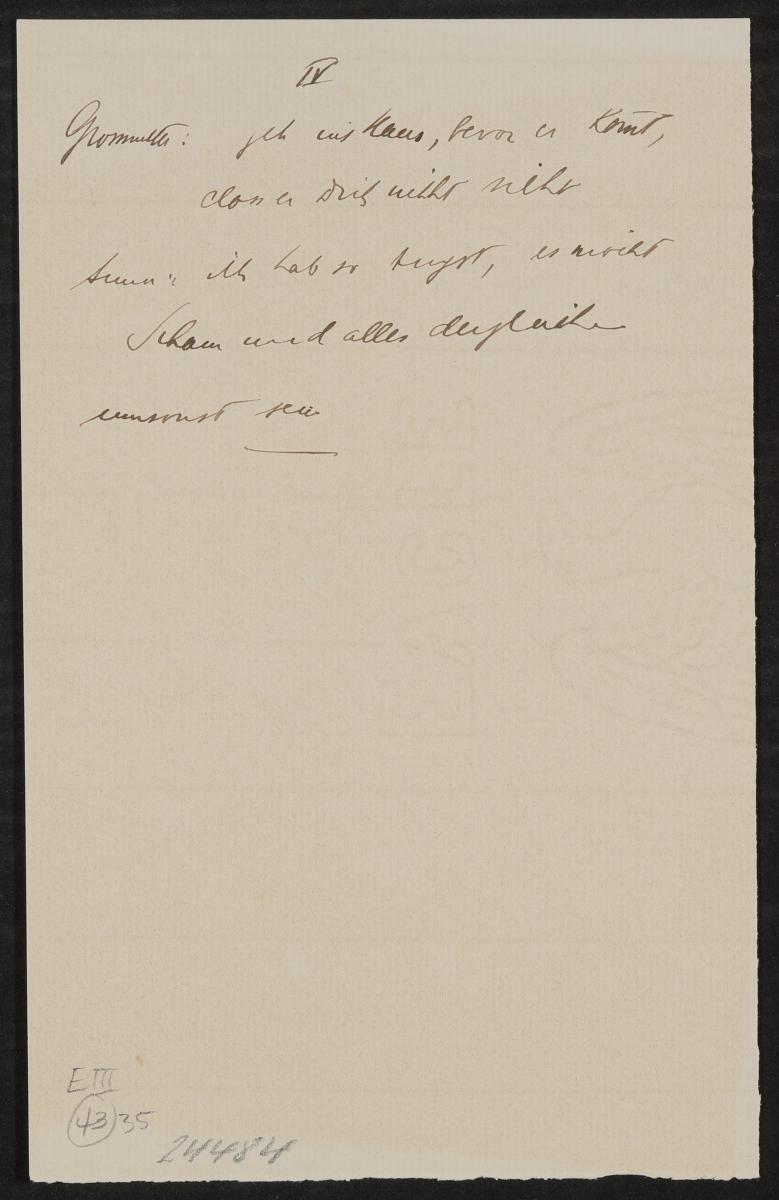 IV
Grossmutter: geh ins Haus, bevor er kom̄t,
dass er Dich nicht sieht
Anna: ich hab so Angst, es möcht
Scham und alles dergleichen
umsonst sein
EAGLE
E III
43 35
24484